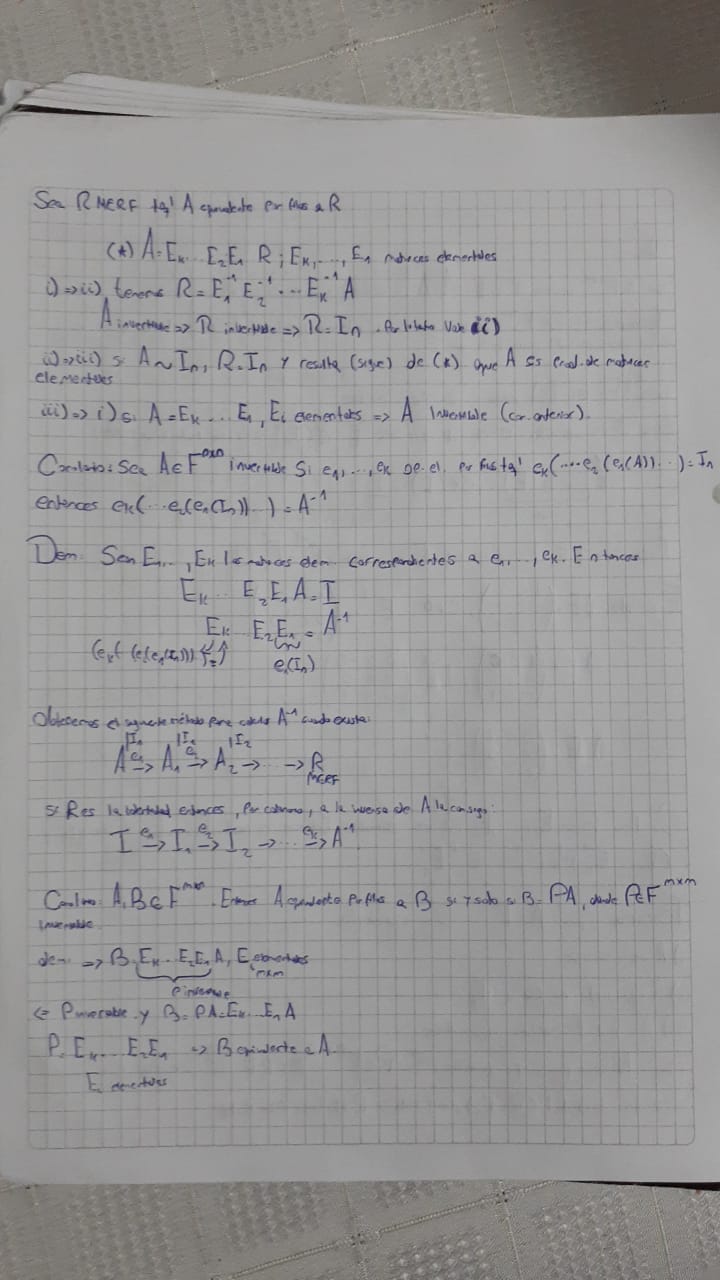 Sea R MERF tq' A equivalente por filas a R
(*) A = Ek ... E2 E1 R ; Ek, ..., E1 matrices elementales
i) => ii) tenemos R = E1^-1 E2^-1 ... Ek^-1 A
A invertible => R invertible => R = In . Por lo tanto vale ii)
ii) => iii) si A ~ In, R = In y resulta (sigue) de (*) que A es prod. de matrices
elementales
iii) => i) si A = Ek ... E1, Ei elementales => A invertible (cor. anterior).
Corolario: Sea A ∈ F^nxn invertible Si e1, ..., ek op. el. por filas tq' ek(... e2(e1(A)) ...) = In
entonces ek(... e2(e1(In)) ...) = A^-1
Dem: Sean E1, ..., Ek las matrices elem. correspondientes a e1, ..., ek. Entonces
Ek ... E2 E1 A = I
Ek ... E2 E1 = A^-1
(ek( (e2(e1(In)))
e1(In)
Obtenemos el siguiente método para calcular A^-1 cuando exista:
|In |I1 |I2
A e1-> A1 -> A2 -> ... -> R
MERF
si R es la identidad entonces, por corolario, a la inversa de A la consigo:
I e1-> I1 e2-> I2 -> ... ek-> A^-1
Corolario A, B ∈ F^mxn. Entonces A equivalente por filas a B si y solo si B = PA, donde P ∈ F^mxm
invertible
dem: => B = Ek ... E2 E1 A, Ei elementales
mxm
P invertible
<= P invertible y B = PA = Ek ... E1 A
P = Ek ... E2 E1 => B equivalente a A.
Ei elementales